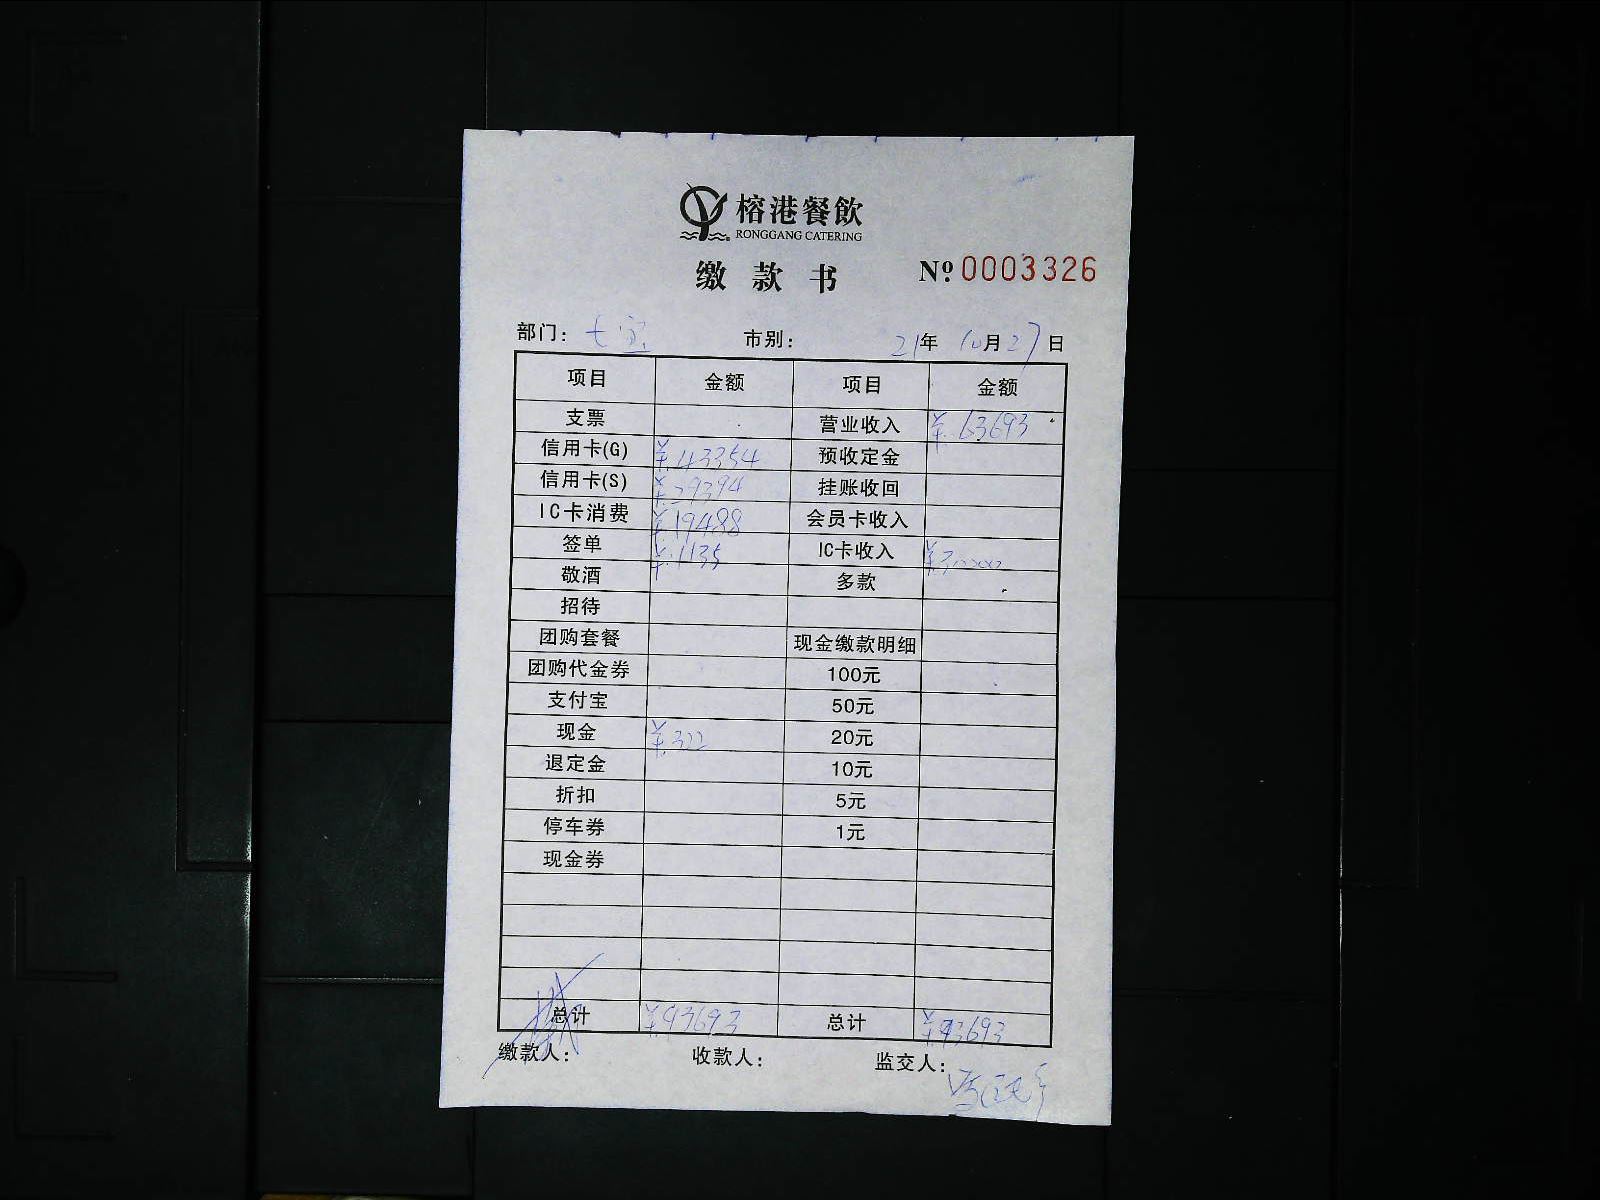 榕港餐飲
RONGGANG CATERING
缴款书 Nº 0003326
部门: 七宝 市别: 21年10月27日
项目 金额 项目 金额
支票 营业收入 ¥63693
信用卡(G) ¥43354 预收定金
信用卡(S) ¥29394 挂账收回
IC卡消费 ¥19488 会员卡收入
签单 ¥1135 IC卡收入 ¥30000
敬酒 多款
招待
团购套餐 现金缴款明细
团购代金券 100元
支付宝 50元
现金 ¥322 20元
退定金 10元
折扣 5元
停车券 1元
现金券
总计 ¥93693 总计 ¥93693
缴款人: 收款人: 监交人: